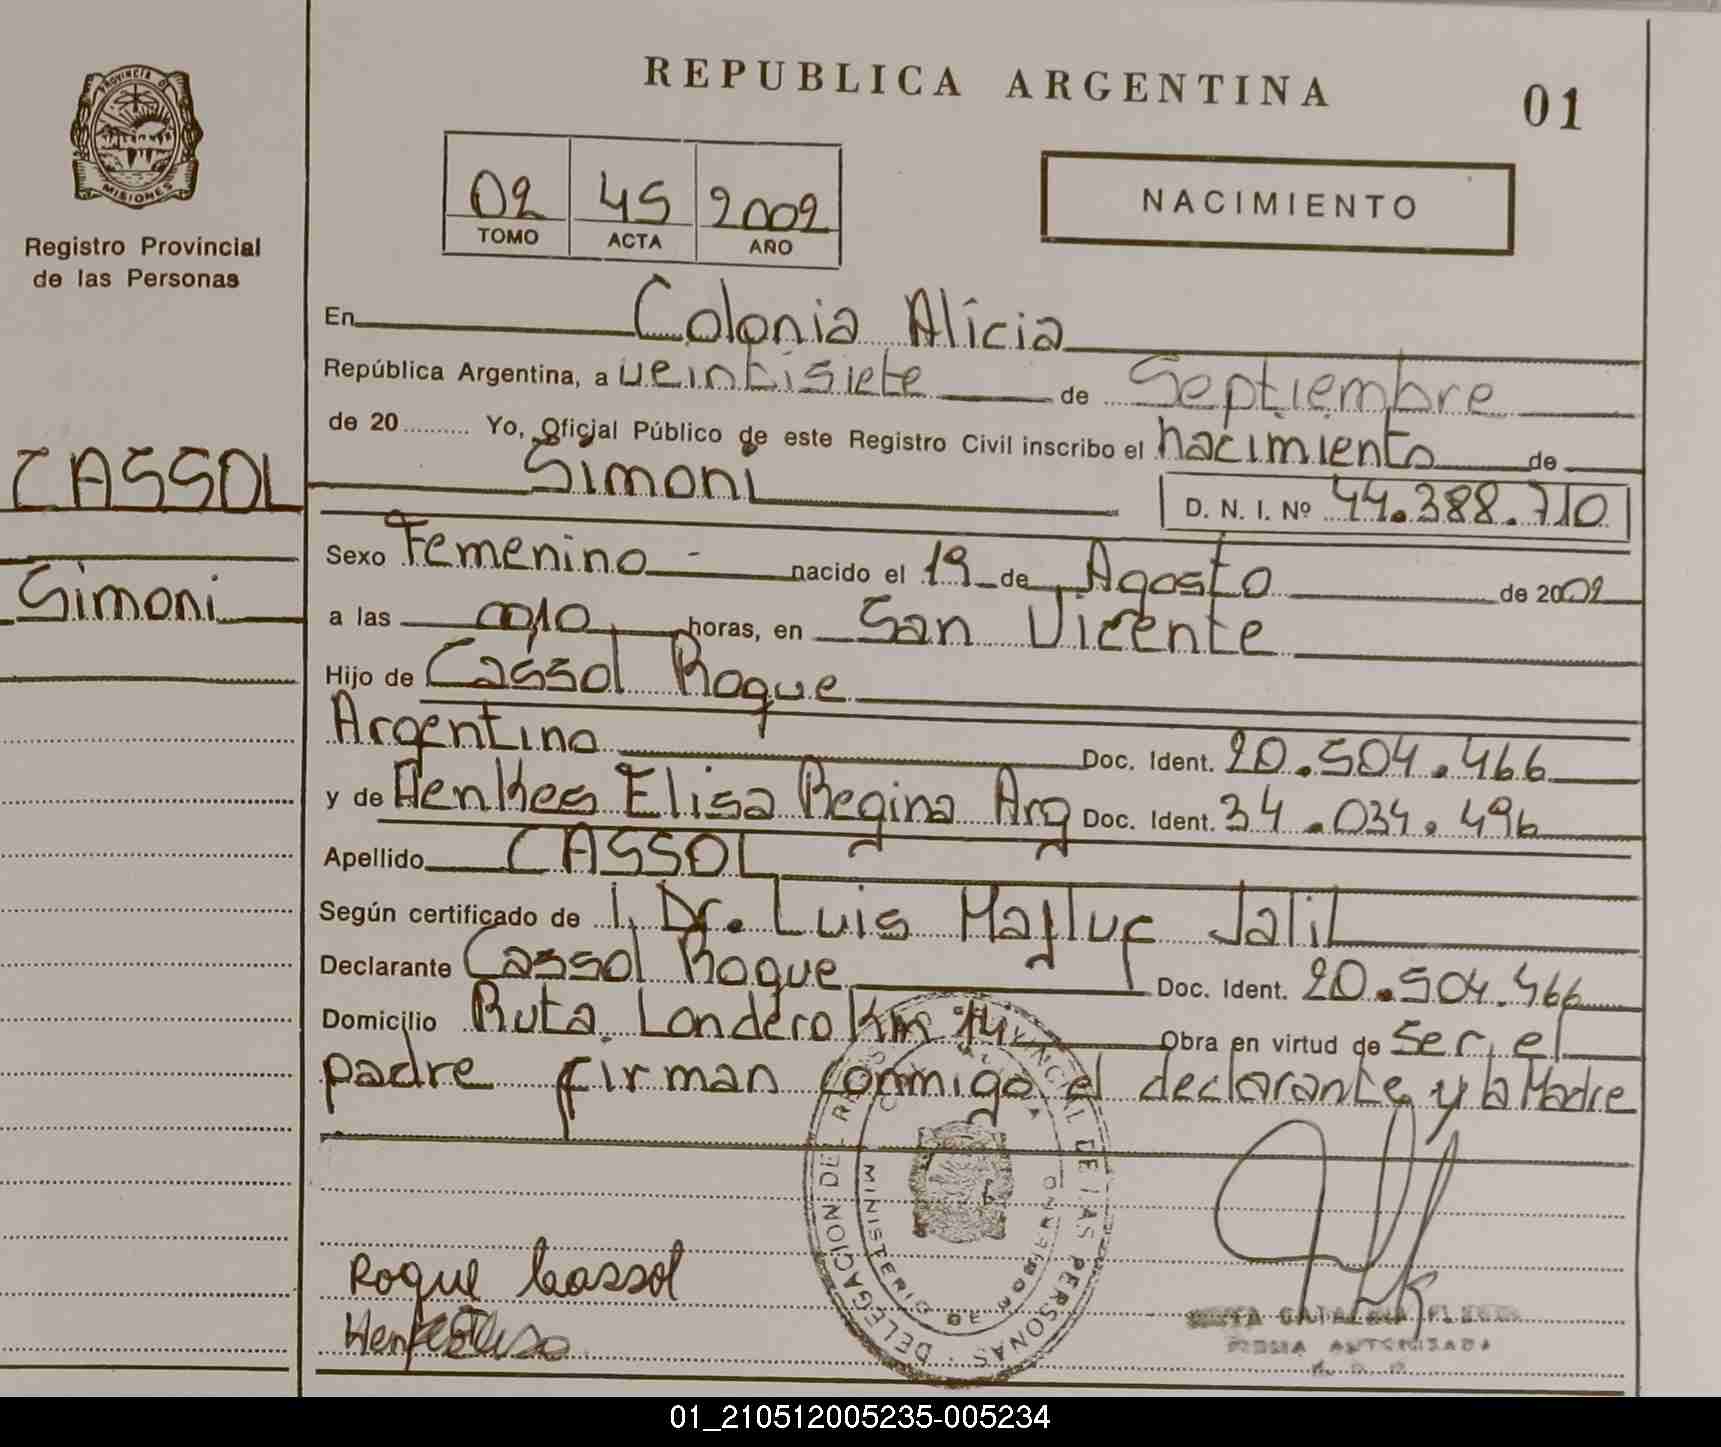 REPUBLICA ARGENTINA
01
PROVINCIA DE
MISIONES
Registro Provincial
de las Personas
02 45 2002
TOMO ACTA AÑO
NACIMIENTO
En Colonia Alicia
República Argentina, a veintisiete de Septiembre
de 20.......... Yo, Oficial Público de este Registro Civil inscribo el nacimiento de
Simoni
D. N. I. Nº 44.388.710
CASSOL
Simoni
Sexo Femenino - nacido el 19 de Agosto de 2002
a las 00,10 horas, en San Vicente
Hijo de Cassol Roque
Argentino Doc. Ident. 20.504.466
y de Henkes Elisa Regina Arg Doc. Ident. 34.034.496
Apellido CASSOL
Según certificado de Dr. Luis Jalil
Declarante Cassol Roque Doc. Ident. 20.504.466
Domicilio Ruta Londero Km 14 Obra en virtud de ser el
padre firman conmigo el declarante y la Madre
Roque Cassol
DELEGACION DE PROVINCIAL DE LAS PERSONAS
MINISTERIO DE GOBIERNO
CATALINA
FIRMA AUTORIZADA
01_210512005235-005234